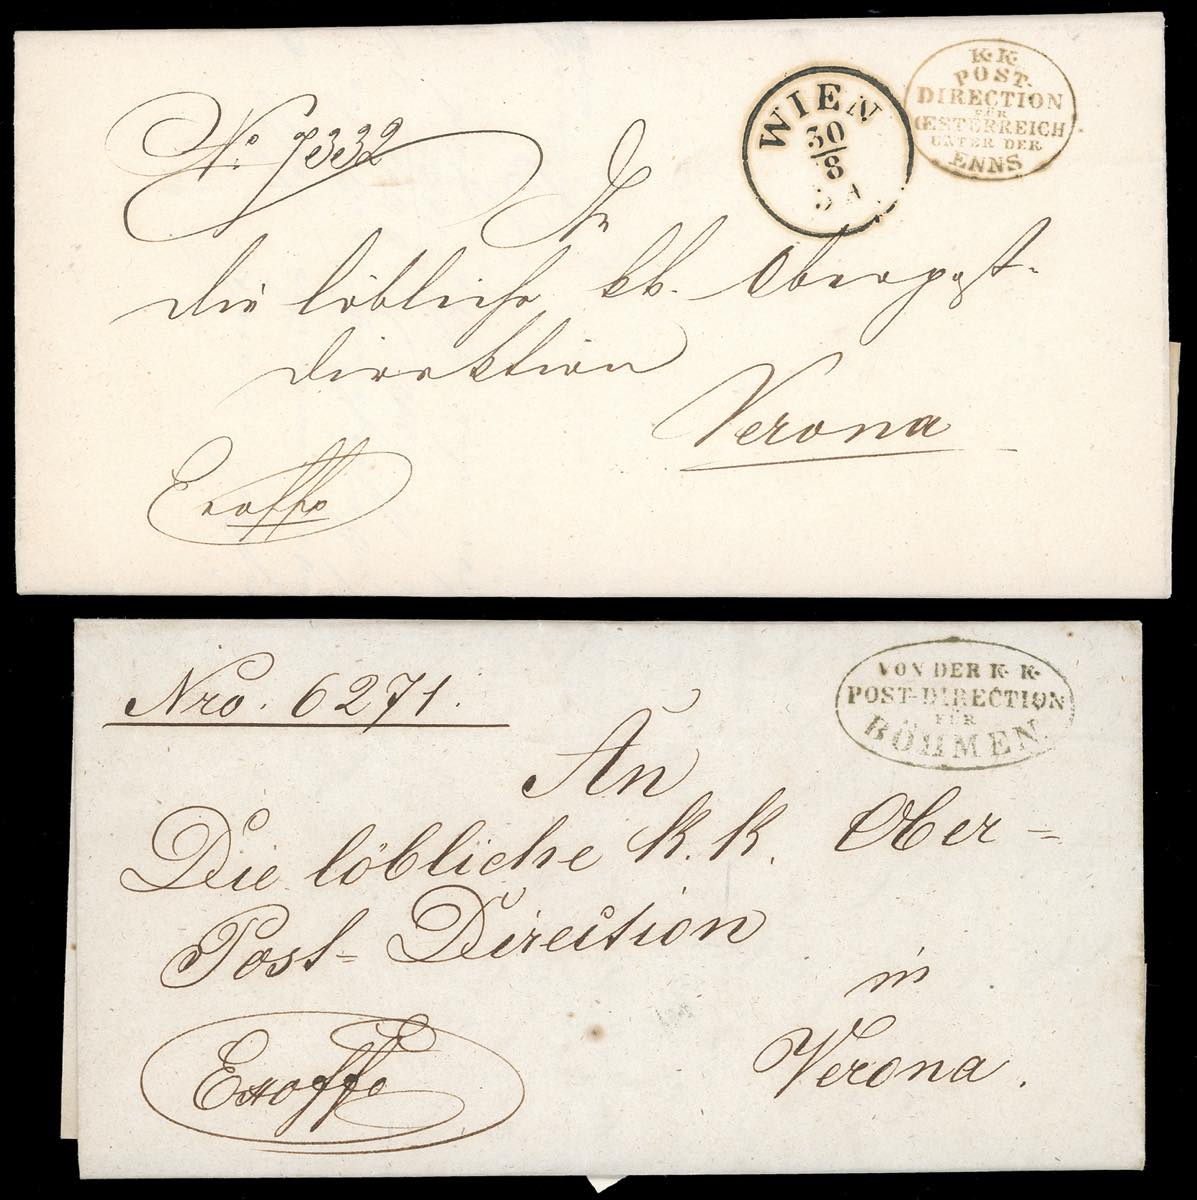 No. 7332
WIEN
30
8
5 A
K. K.
POST-
DIRECTION
FÜR
ŒSTERREICH
UNTER DER
ENNS
An
die löbliche kk. Oberpost-
direktion
Verona
Exoffo
Nro. 6271.
VON DER K. K.
POST-DIRECTION
FÜR
BÖHMEN
An
Die löbliche k. k. Ober=
Post=Direction
in
Verona.
Exoffo